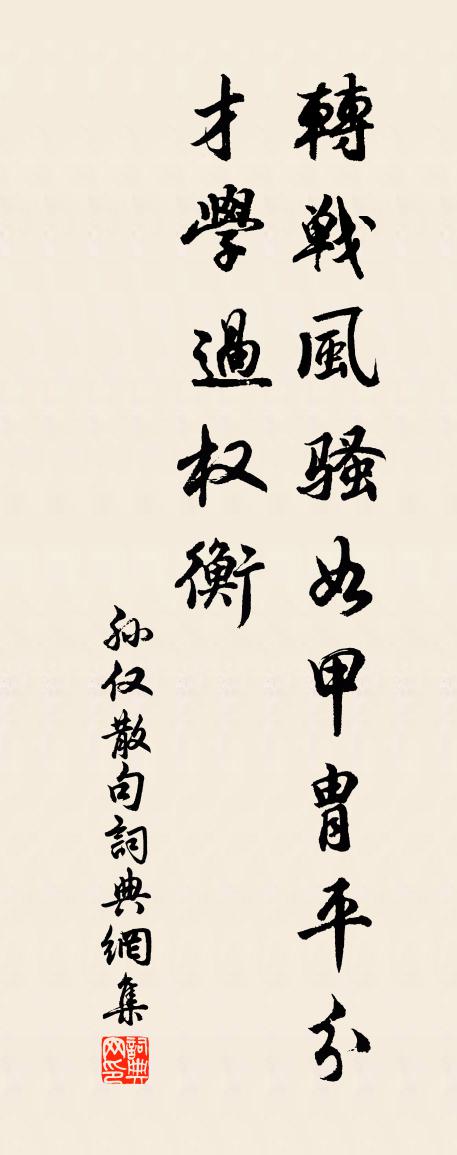 轉戦風騷如甲胄平分
才學過权衡
孙仅散句詞典網集
詞典网印